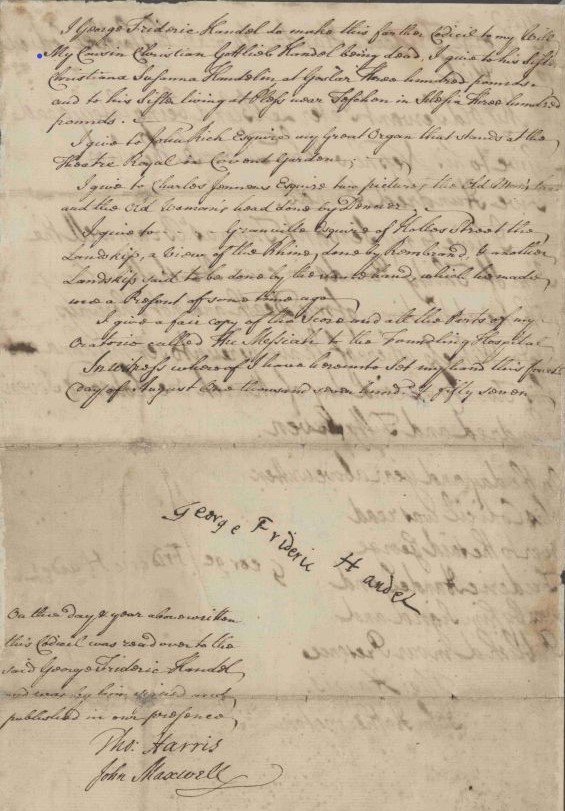 I George Frideric Handel do make this farther Codicil to my Will.
My Cousin Christian Gottlieb Handel being dead, I give to his Sister
Christiana Susanna Handelin at Goslar Three hundred pounds.
and to his Sister living at Pless near Teschen in Silesia Three hundred
pounds.
I give to John Rich Esquire my Great Organ that stands at the
Theatre Royal in Covent Garden.
I give to Charles Jennens Esquire two pictures the Old Man's head
and the Old Woman's head done by Denner.
I give to Granville Esquire of Holles Street the
Landskip, a View of the Rhine, done by Rembrand, & another
Landskip said to be done by the same hand, which he made
me a Present of some time ago
I give a fair copy of the Score and all the Parts of my
Oratorio called The Messiah to the Foundling Hospital
In witness whereof I have hereunto Set my hand this fourth
day of August One thousand seven hund.d & fifty seven
George Frideric Handel
On the day & year above written
this Codicil was read over to the
said George Frideric Handel
and was by him signed and
published in our presence
Tho: Harris
John Maxwell